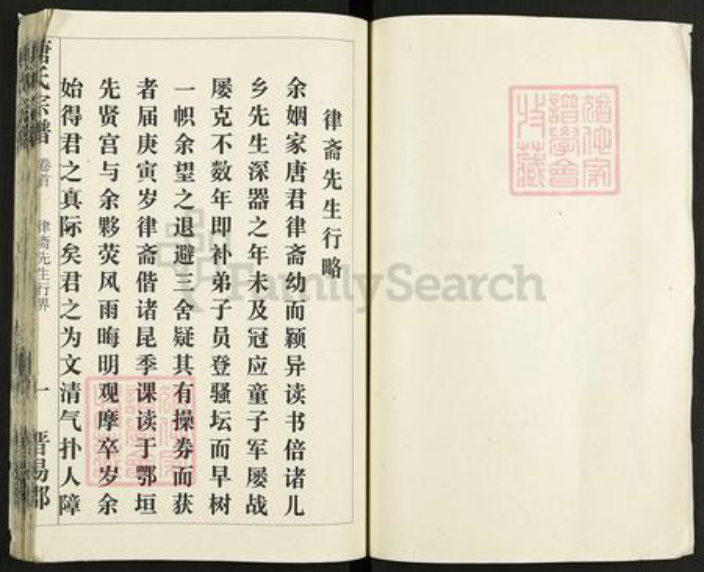 律斋先生行略
余姻家唐君律斋幼而颖异读书倍诸儿
乡先生深器之年未及冠应童子军屡战
屡克不数年即补弟子员登骚坛而早树
一帜余望之退避三舍疑其有操券而获
者届庚寅岁律斋偕诸昆季课读于鄂垣
先贤宫与余夥荧风雨晦明观摩卒岁余
始得君之真际矣君之为文清气扑人障
唐氏宗谱 卷首 律斋先生行略 一 晋昜郡
FamilySearch